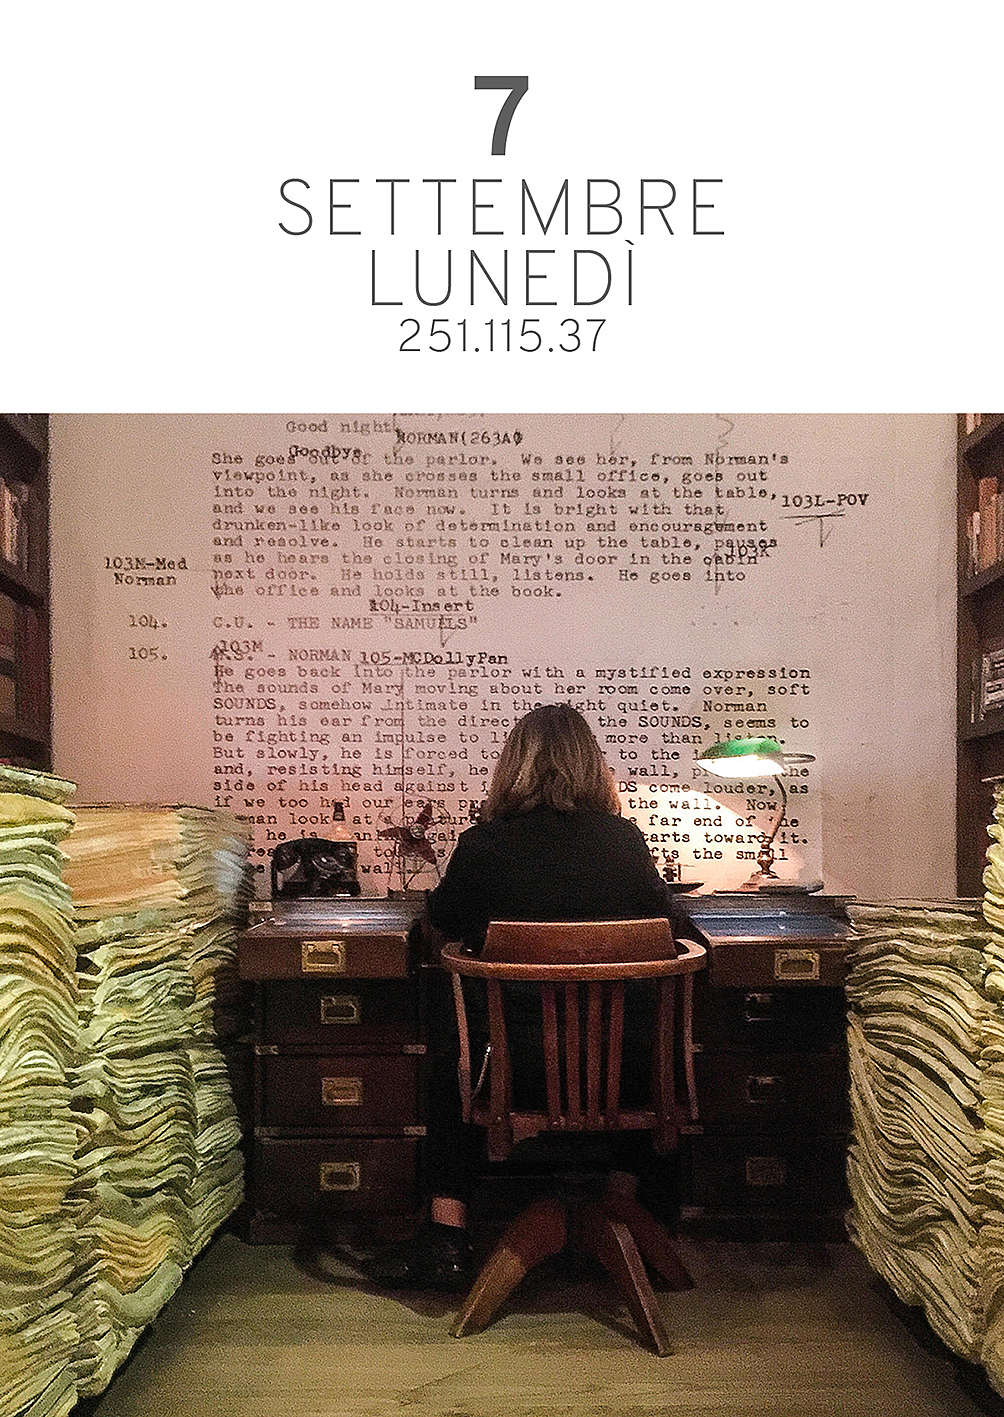 7
SETTEMBRE
LUNEDÌ
251.115.37
Good night
NORMAN(263A)
Goodbye
She goes out of the parlor. We see her, from Norman's
viewpoint, as she crosses the small office, goes out
into the night. Norman turns and looks at the table,
103L-POV
and we see his face now. It is bright with that
drunken-like look of determination and encouragement
and resolve. He starts to clean up the table, pauses
103K
as he hears the closing of Mary's door in the cabin
103M-Med
Norman
next door. He holds still, listens. He goes into
the office and looks at the book.
104-Insert
104. C.U. - THE NAME "SAMUELS"
103M
105. - NORMAN 105-MCDollyPan
He goes back into the parlor with a mystified expression
The sounds of Mary moving about her room come over, soft
SOUNDS, somehow intimate in the night quiet. Norman
turns his ear from the the SOUNDS, seems to
be fighting an impulse to more than listen.
But slowly, he is forced to to the
and, resisting himself, he wall, the
side of his head against come louder, as
if we too had our ears the wall. Now
look at a far end of the
he is toward it.
the small
wall